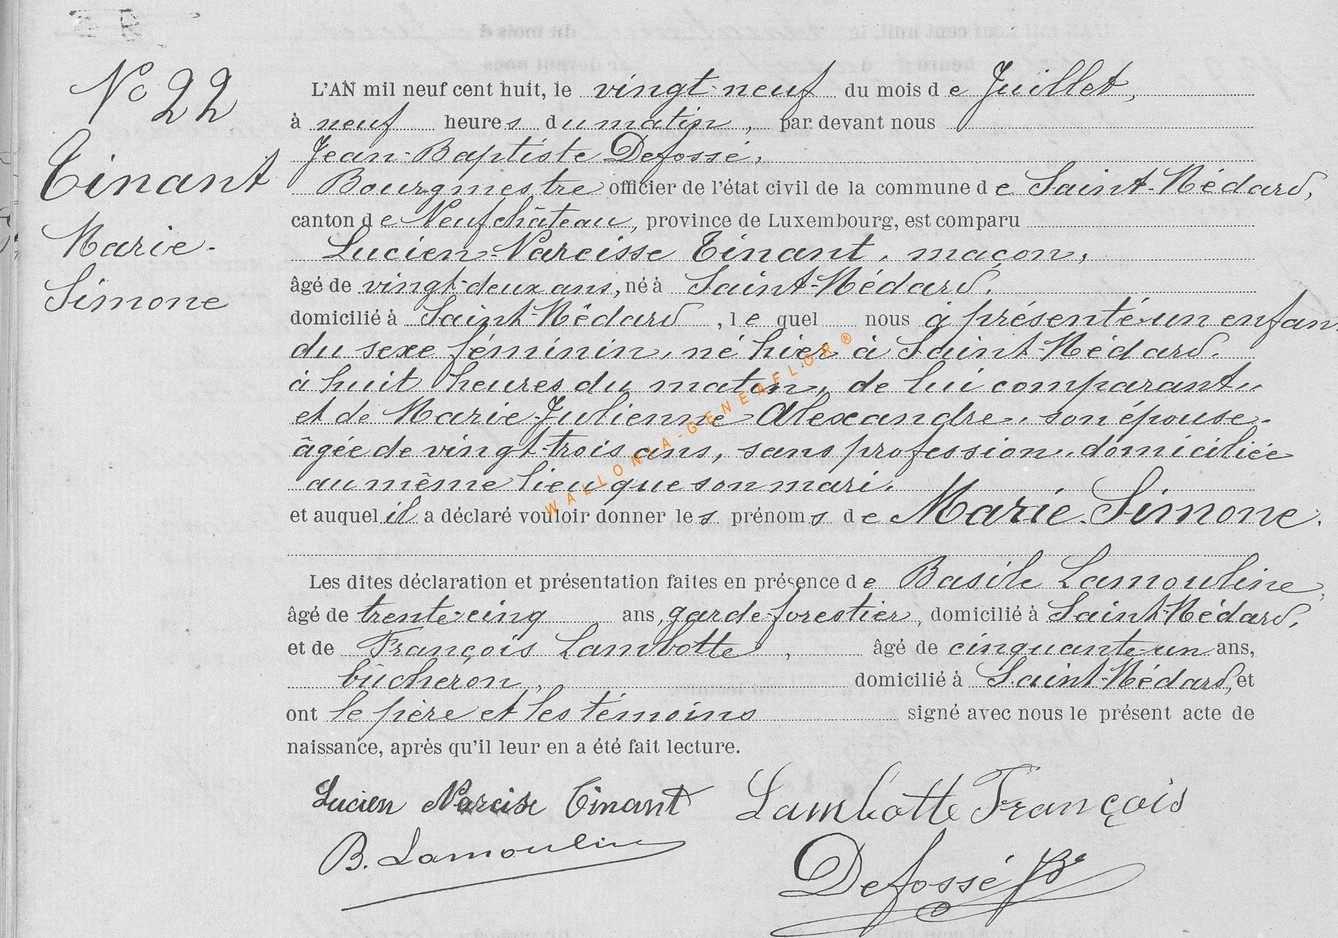 No 22
Tinant
Marie-
Simone
L'AN mil neuf cent huit, le vingt-neuf du mois d e Juillet,
à neuf heures du matin, par devant nous
Jean-Baptiste Defossé,
Bourgmestre officier de l'état civil de la commune d e Saint-Médard,
canton d e Neufchâteau, province de Luxembourg, est comparu
Lucien-Narcisse Tinant, maçon,
âgé de vingt-deux ans, né à Saint-Médard,
domicilié à Saint-Médard, le quel nous a présenté un enfant
du sexe féminin, né hier à Saint-Médard,
à huit heures du matin, de lui comparant,
et de Marie-Julienne Alexandre, son épouse,
âgée de vingt-trois ans, sans profession, domiciliée
au même lieu que son mari,
et auquel il a déclaré vouloir donner les prénoms de Marie-Simone.
Les dites déclaration et présentation faites en présence de Basile Lamouline,
âgé de trente-cinq ans, garde-forestier, domicilié à Saint-Médard,
et de François Lambotte, âgé de cinquante-un ans,
bûcheron, domicilié à Saint-Médard, et
ont le père et les témoins signé avec nous le présent acte de
naissance, après qu'il leur en a été fait lecture.
Lucien Narcisse Tinant Lambotte François
B. Lamouline
Defossé JB
WALLONIA-GENEAFLOR ®